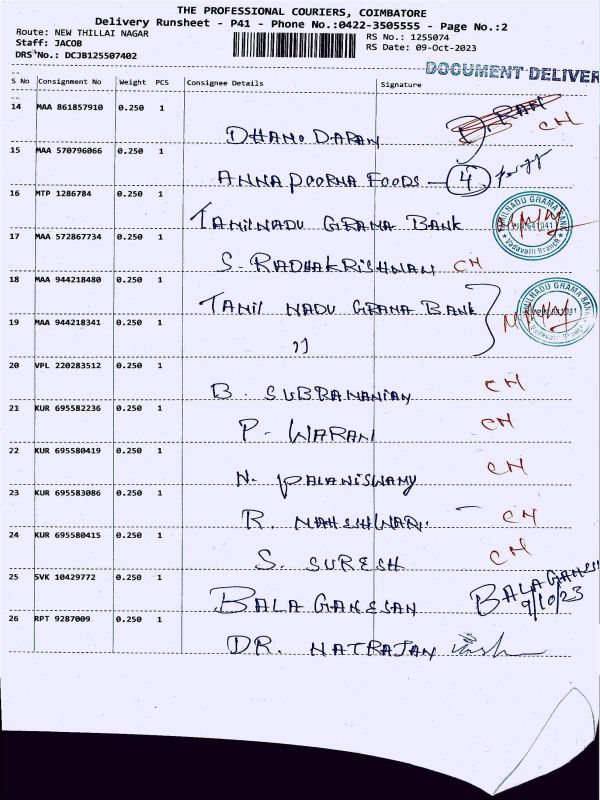 THE PROFESSIONAL COURIERS, COIMBATORE
Delivery Runsheet - P41 - Phone No.:0422-3505555 - Page No.:2
Route: NEW THILLAI NAGAR
RS No.: 1255074
Staff: JACOB
RS Date: 09-Oct-2023
DRS No.: DCJB125507402
DOCUMENT DELIVER
S No Consignment No Weight PCS Consignee Details Signature
14 MAA 861857910 0.250 1
DHAMODARAN CM
15 MAA 570796066 0.250 1
ANNAPOORNA FOODS - 4
16 MTP 1286784 0.250 1
TAMILNADU GRAMA BANK
TAMILNADU GRAMA BANK
Vadavalli Branch
17 MAA 572867734 0.250 1
S. RADHAKRISHNAN CM
18 MAA 944218480 0.250 1
TAMIL NADU GRAMA BANK
TAMILNADU GRAMA BANK
Vadavalli Branch
19 MAA 944218341 0.250 1
11
20 VPL 220283512 0.250 1
B. SUBRAMANIAN CM
21 KUR 695582236 0.250 1
P. WARAN CM
22 KUR 695580419 0.250 1
N. PALANISWAMY CM
23 KUR 695583086 0.250 1
R. MAHESHWARI. CM
24 KUR 695580415 0.250 1
S. SURESH CM
25 SVK 10429772 0.250 1
BALA GANESAN BALA GANESH
9/10/23
26 RPT 9287009 0.250 1
DR. NATRAJAN